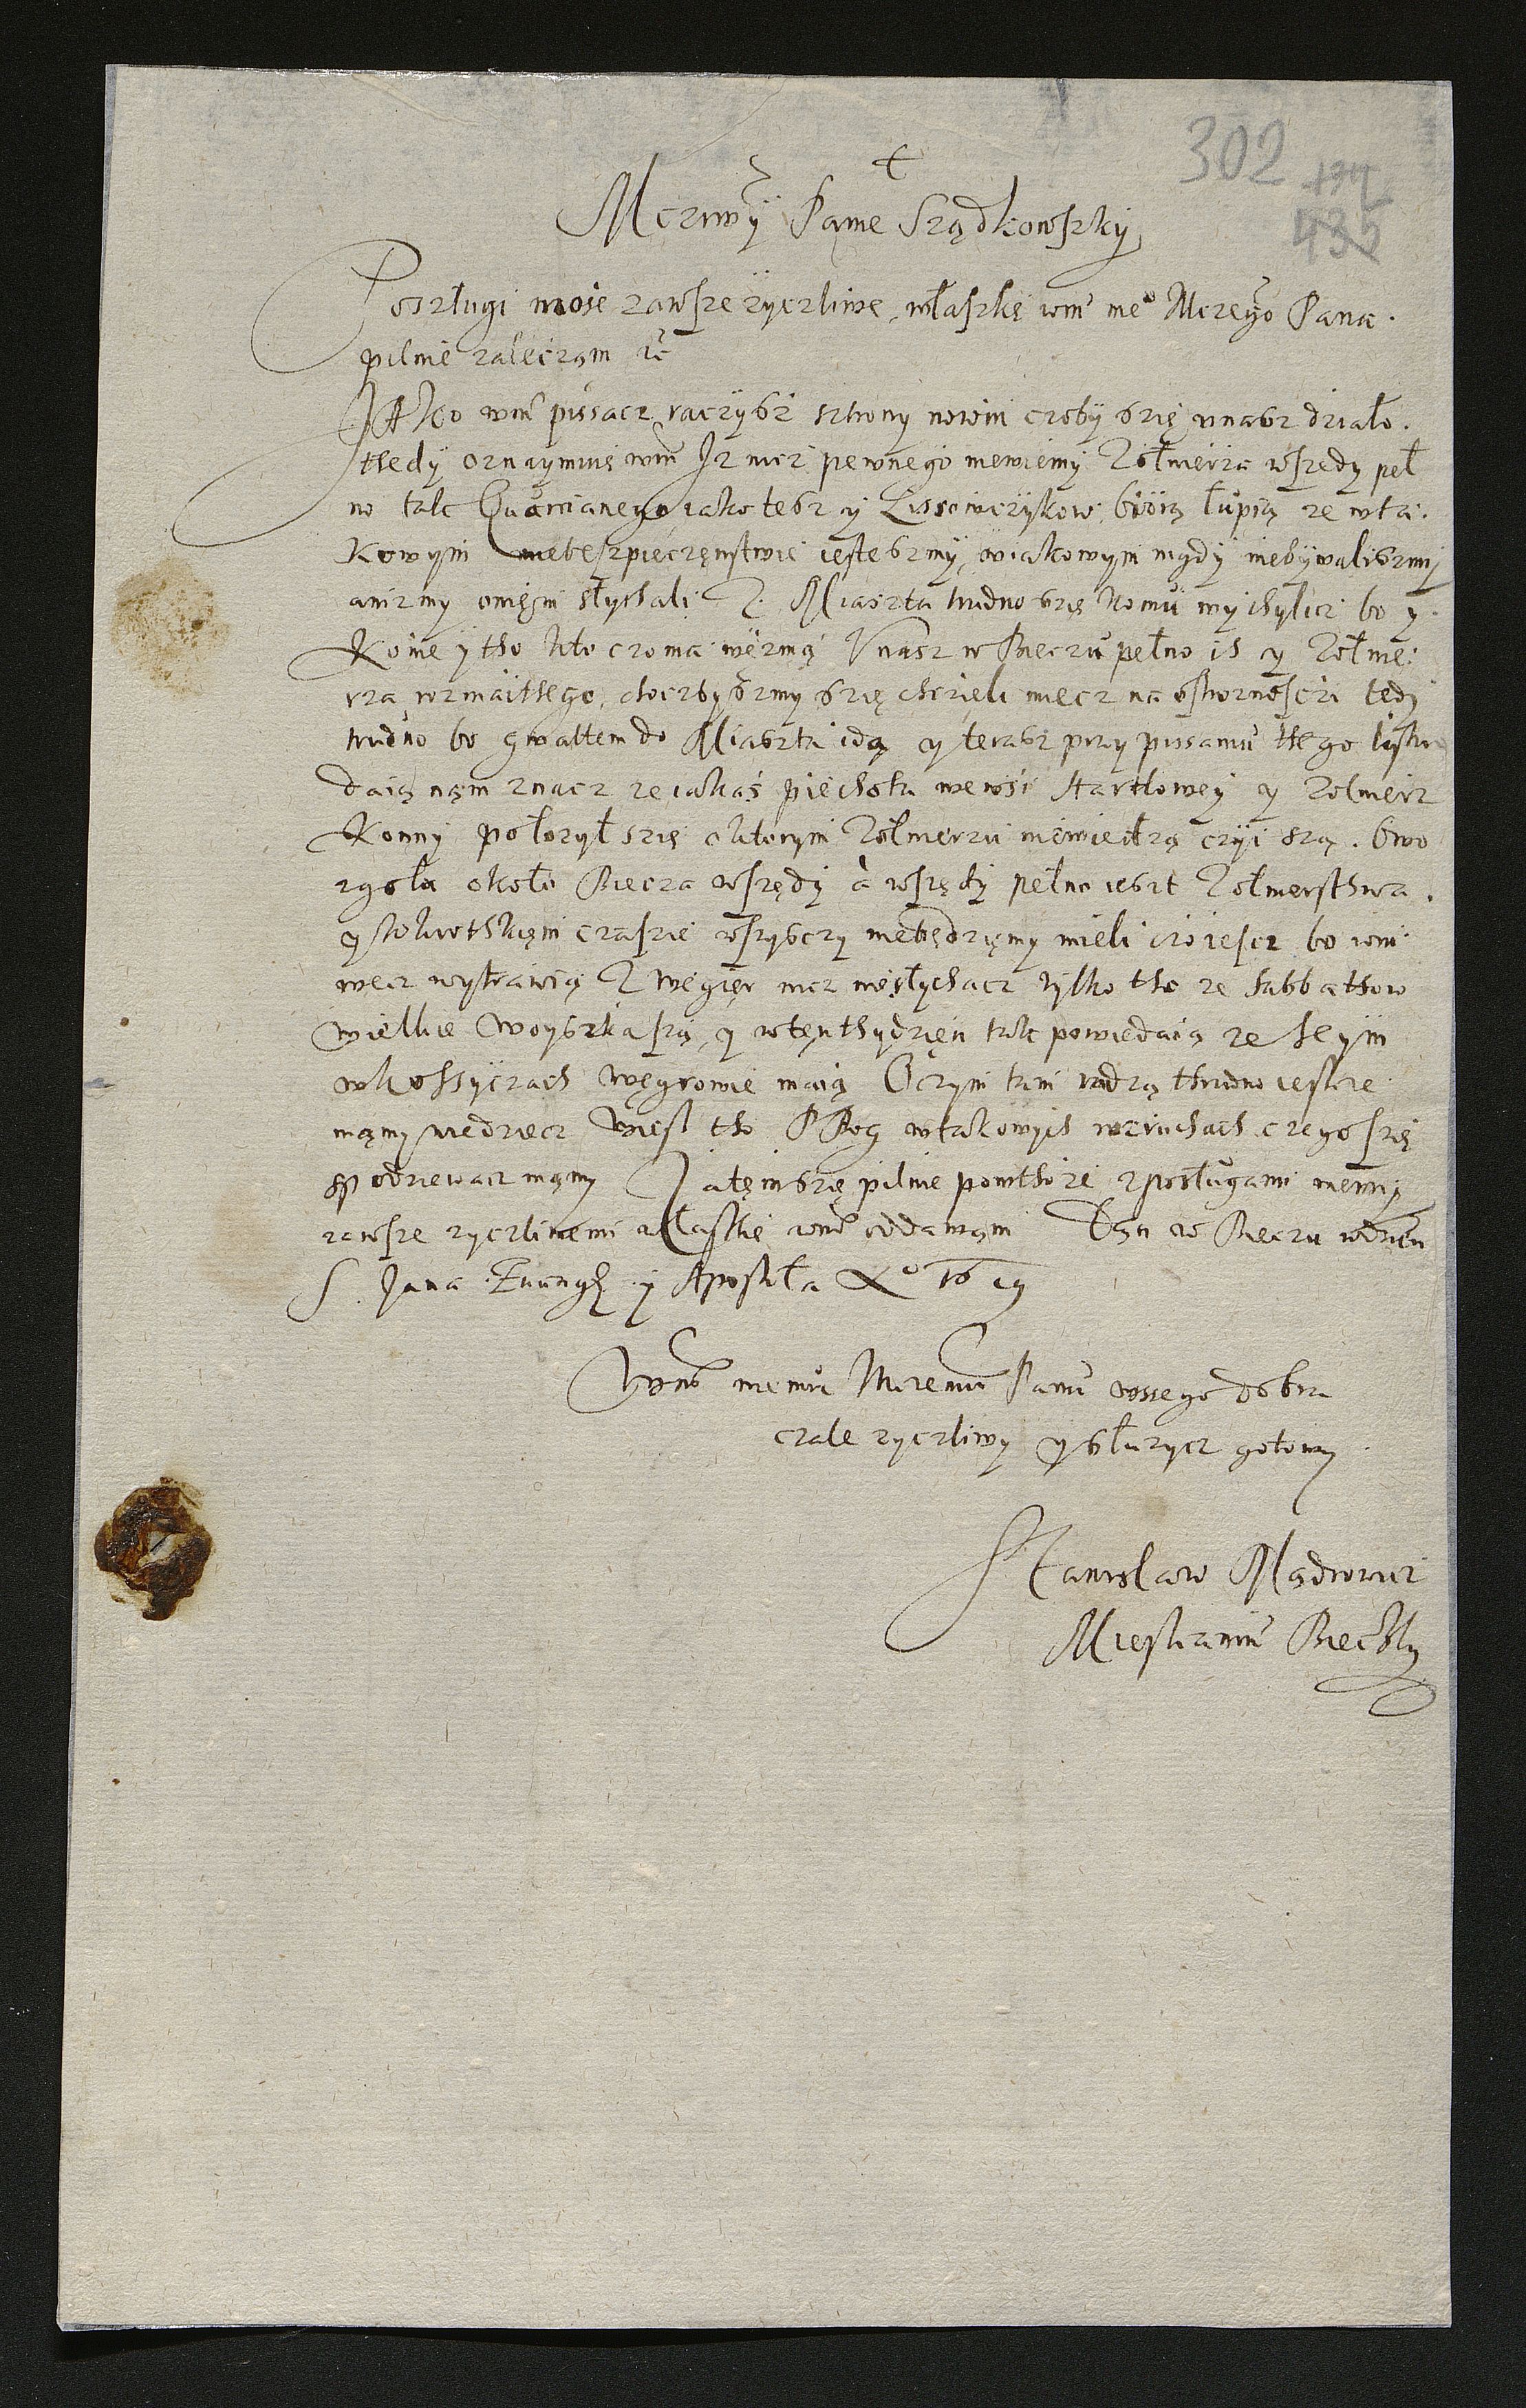 302
174
435
Mcziwÿ Panie Srządkowszkÿ
Poszługi moie zawsze życzliwe, właszkę wm me Mczego Pana.
pilnie zaleczam ec
Jako wm pissacz raczysz strony nowin czoby szię unasz działo.
thedÿ oznaymuię wm Iz nicz pewnego niewiemÿ Zołnierza wszędy peł
no tak Quarcianego iako tesz y Lissowczÿkow, biÿią łupią ze wta.
kowÿm niebeszpieczęnstwie iestesmÿ, wiakowym nigdÿ niebÿwalismÿ
anizmy onięm słychali Z. Miaszta trudno szię komu wychylicz bo y
Konie y tho kto czo ma wezmą V nasz w Bieczu pełno ich y Zołnie.
rza rozmaithego, choczbysmy szię chcieli miecz na ostroznosczi tedÿ
trudno bo gwałtem do Miaszta idą y terasz przy pissaniu thego listu
daią nąm znacz ze iakaś piechota wewsi Harklowey y Zołnierz
Konny położył szię o ktorym Zołnierzu niewiedzą czyi szą. bwo
zgoła około Biecza wszędÿ à wszędÿ pełno iest Zołnierstwa.
y wkrothkięm czaszie wszysczy niebędzięmy mieli czo iescz bo wni
wecz wytrawią Z Węgięr nicz niesłychacz tylko tho ze Sabbathow
wielkie woyszka są, y wtęnthydzięń tak powiedaią ze Seÿm
wkossÿczach Węgrowie maią Oczym tam radzą thrudno iescze
mąmy wiedziecz wiesz tho P Bog wtakowych wzruchach czego szię
spodziewacz mąmy Zatęm szię pilnie powthore zposługami memi
zawsze zyczliwemi właskię wm oddawąm Dąn w Bieczu wdzień
S. Jana Euangl. y Apostoła Ao 1619
Wm memu Mczemu Panu wssego dobra
czale zyczliwy y słuzycz gotowy
Stanisław Mądrowicz
Miesczanin Biecky